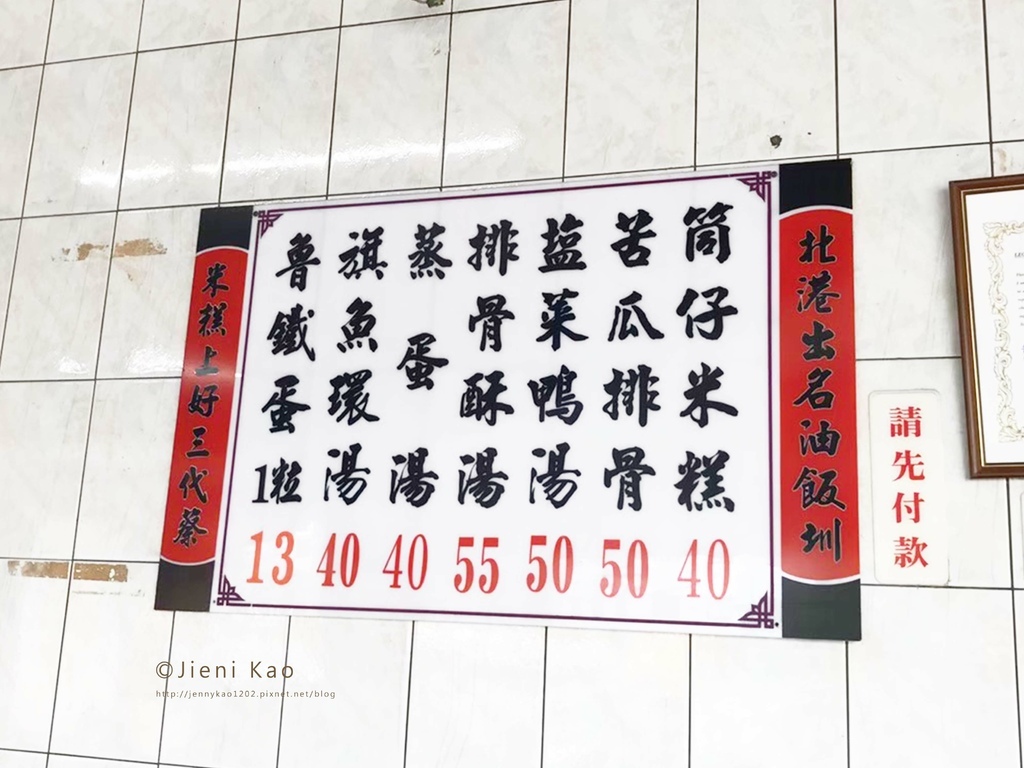 北港出名油飯圳
筒仔米糕
40
苦瓜排骨
50
塩菜鴨湯
50
排骨酥湯
55
蒸蛋湯
40
旗魚環湯
40
魯鐵蛋1粒
13
米糕上好三代蔡
請先付款
©Jieni Kao
http://jennykao1202.pixnet.net/blog